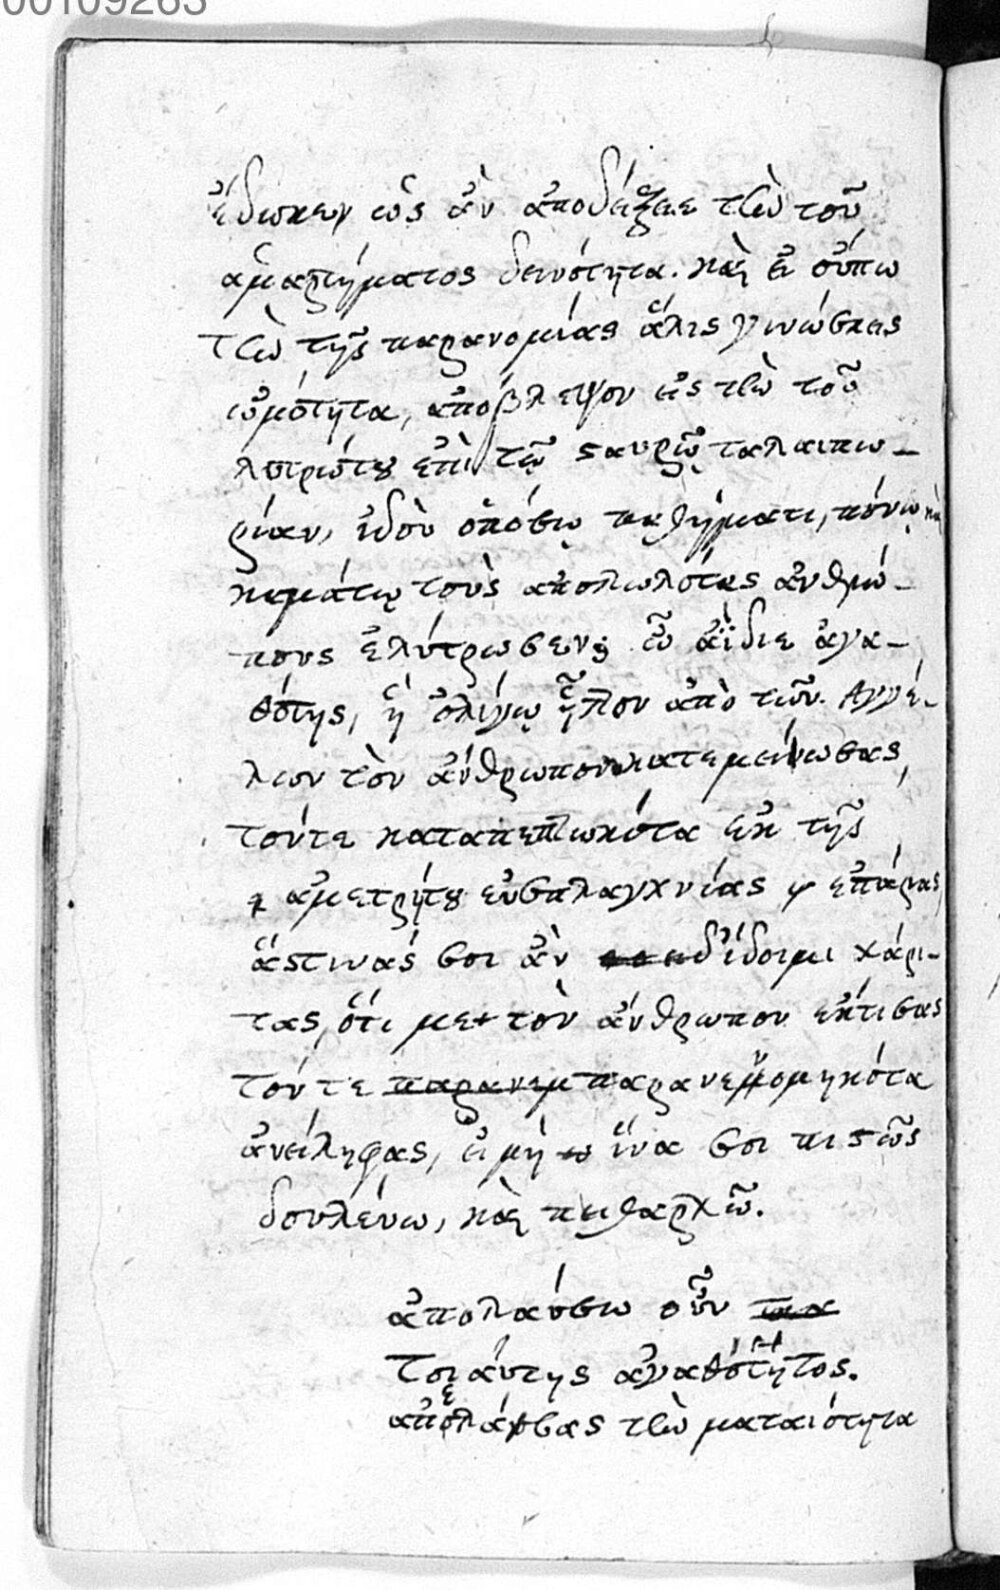 00109263
ἔδωκεν ὡς ἂν ἀποδείξειε τὴν τοῦ
ἁμαρτήματος δεινότητα. καὶ εἰ οὔπω
τὴν τῆς παρανομίας ἅλις γινώσκεις
ὠμότητα, ἀπόβλεψον εἰς τὴν τοῦ
λυτρώτου ἐπὶ τῷ σαυρῷ ταλαιπω-
ρίαν, ἰδοὺ ὁπόσῳ παθήματι, πόνῳ καὶ
καμάτῳ τοὺς ἀπολωλότας ἀνθρώ-
πους ἐλύτρωσεν; ὦ ἀΐδιε ἀγα-
θότης, ἣ ὀλίγῳ ἧττον ἀπὸ τῶν Ἀγγέ-
λων τὸν ἄνθρωπον
τόντε καταπεπτωκότα ἐκ τῆς
ἀμετρήτου εὐσπλαγχνίας ἐπάρας,
ἅστινάς σοι ἂν δίδοιμι χάρι-
τας, ὅτι με τὸν ἄνθρωπον ἔκτισας
τόντε παρανεμ παρανενομηκότα
ἀνείληφας, εἰ μὴ ἵνα σοι πιστῶς
δουλεύω, καὶ πειθαρχῶ.
ἀπολαύσω οὖν
τοιαύτης ἀγαθότητος.
τὴν ματαιότητα